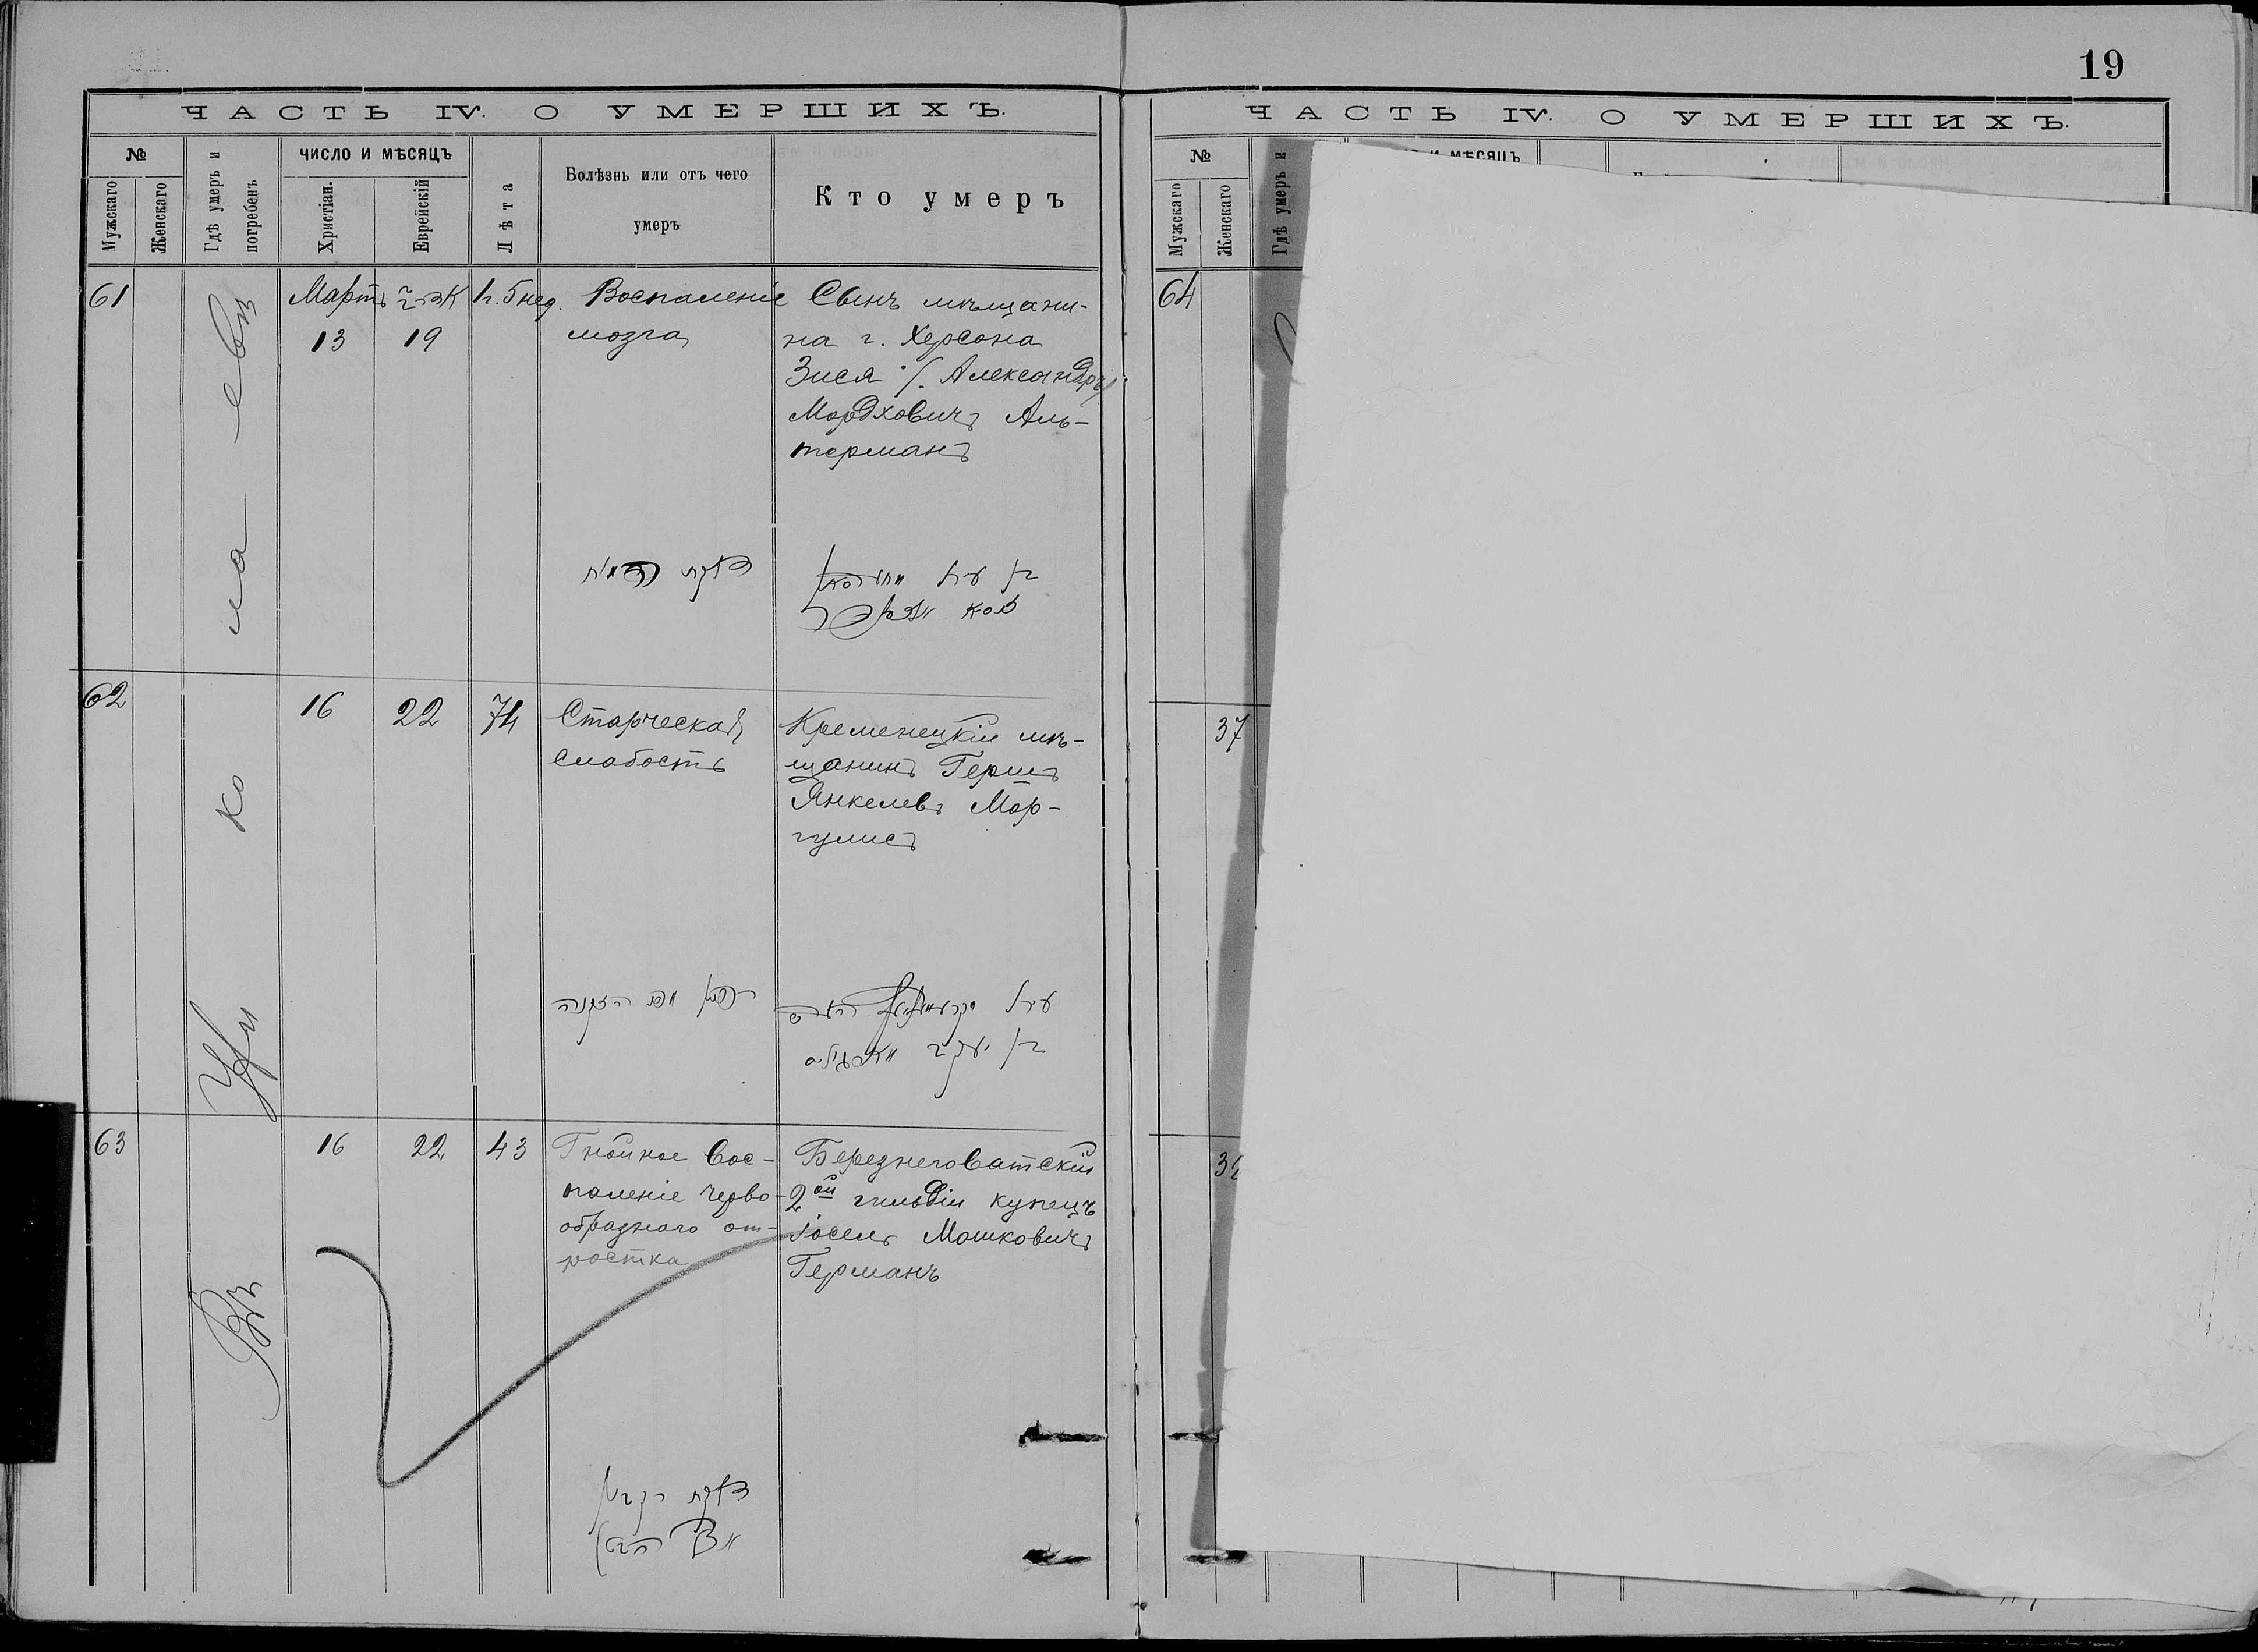 19
ЧАСТЬ IV. О УМЕРШИХЪ.
№
Мужскаго
Женскаго
Гдѣ умеръ и погребенъ
ЧИСЛО И МѢСЯЦЪ
Христіан.
Еврейскій
Лѣта
Болѣзнь или отъ чего
умеръ
Кто умеръ
61
Мартъ
13
19
1 г. 5 нед.
Воспаленіе
мозга
Сынъ мѣщани-
на г. Херсона
Зися /. Александръ/
Мордховичъ Аль-
терманъ
דלקת
בן
62
16
22
74
Старческая
слабость
Кременецкій мѣ-
щанинъ Гершъ
Янкелевъ Мар-
гулисъ
הזקנה
בן יעקב
63
16
22
43
Гнойное вос-
паленіе черво-
образнаго от-
ростка
Березнеговатскій
2ой гильдіи купецъ
Іосель Мошковичъ
Германъ
דלקת
Въ
Ни
ко
ла
евѣ
ЧАСТЬ IV. О УМЕРШИХЪ.
№
Мужскаго
Женскаго
Гдѣ умеръ и
И МѢСЯЦЪ
64
37